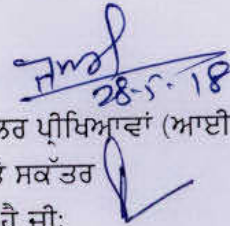 28-5-18
ਲਰ ਪ੍ਰੀਖਿਆਵਾਂ (ਆਈ
ਸਕੱਤਰ
ਹੈ ਜੀ: